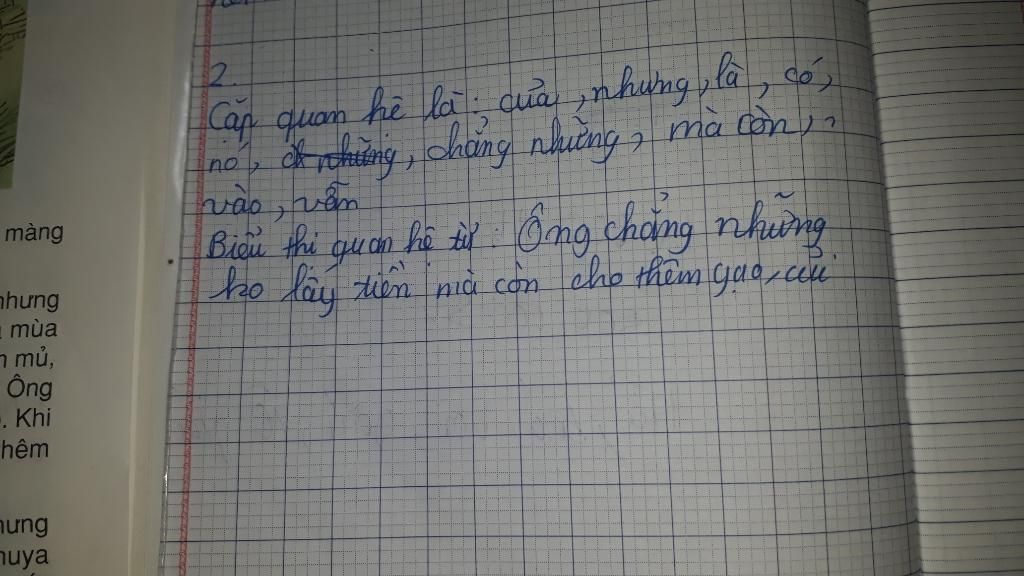 màng
nhưng
mùa
mủ,
Ông
. Khi
thêm
nưng
nuya
2.
Cặp quan hê là : của , nhưng , là , có ,
nó , chẳng những , mà còn ,
vào , vẫn
Biểu thi quan hê từ : Ông chẳng những
ko lấy tiền mà còn cho thêm gạo, củi